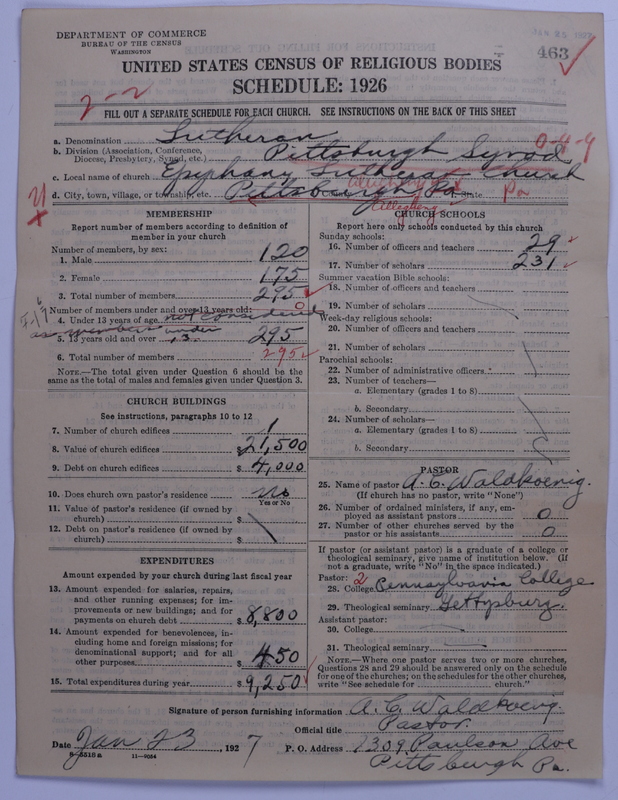 DEPARTMENT OF COMMERCE
BUREAU OF THE CENSUS
WASHINGTON
463
UNITED STATES CENSUS OF RELIGIOUS BODIES
SCHEDULE: 1926
2-2
FILL OUT A SEPARATE SCHEDULE FOR EACH CHURCH. SEE INSTRUCTIONS ON THE BACK OF THIS SHEET
a. Denomination Lutheran
0-4-9
b. Division (Association, Conference, Diocese, Presbytery, Synod, etc.) Pittsburgh Synod
c. Local name of church Epiphany Lutheran Church
d. City, town, village, or township, etc. Pittsburgh Pa. State Pa
Allegheny
MEMBERSHIP
Report number of members according to definition of
member in your church
Number of members, by sex:
1. Male 120
2. Female 175
3. Total number of members 295
Number of members under and over 13 years old: 0
4. Under 13 years of age not considered
as members under
5. 13 years old and over 13. 295
6. Total number of members 295
NOTE.—The total given under Question 6 should be
same as the total of males and females given under Question 3.
CHURCH BUILDINGS
See instructions, paragraphs 10 to 12
7. Number of church edifices 1
8. Value of church edifices $21,500
9. Debt on church edifices $4,000
10. Does church own pastor's residence no
Yes or No
11. Value of pastor's residence (if owned by
church) $
12. Debt on pastor's residence (if owned by
church) $
EXPENDITURES
Amount expended by your church during last fiscal year
13. Amount expended for salaries, repairs,
and other running expenses; for im-
provements or new buildings; and for
payments on church debt $8,800
14. Amount expended for benevolences, in-
cluding home and foreign missions; for
denominational support; and for all
other purposes $450
15. Total expenditures during year $9,250
CHURCH SCHOOLS
Report here only schools conducted by this church
Sunday schools:
16. Number of officers and teachers 29
17. Number of scholars 231
Summer vacation Bible schools:
18. Number of officers and teachers
19. Number of scholars
Week-day religious schools:
20. Number of officers and teachers
21. Number of scholars
Parochial schools:
22. Number of administrative officers
23. Number of teachers—
a. Elementary (grades 1 to 8)
b. Secondary
24. Number of scholars—
a. Elementary (grades 1 to 8)
b. Secondary
PASTOR
25. Name of pastor A. C. Waldkoenig.
(If church has no pastor, write "None")
26. Number of ordained ministers, if any, em-
ployed as assistant pastors 0
27. Number of other churches served by the
pastor or his assistants 0
If pastor (or assistant pastor) is a graduate of a college or
theological seminary, give name of institution below. (If
not a graduate, write "No" in the space indicated.)
Pastor: 2
28. College Pennsylvania College
29. Theological seminary Gettysburg.
Assistant pastor:
30. College
31. Theological seminary
NOTE.—Where one pastor serves two or more churches,
Questions 28 and 29 should be answered only on the schedule
for one of the churches; on the schedules for the other churches,
write "See schedule for church."
Signature of person furnishing information A. C. Waldkoenig.
Official title Pastor.
Date Jan 23, 1927 P. O. Address 1309 Paulson Ave
Pittsburgh Pa.
8—5518 a 11—9054